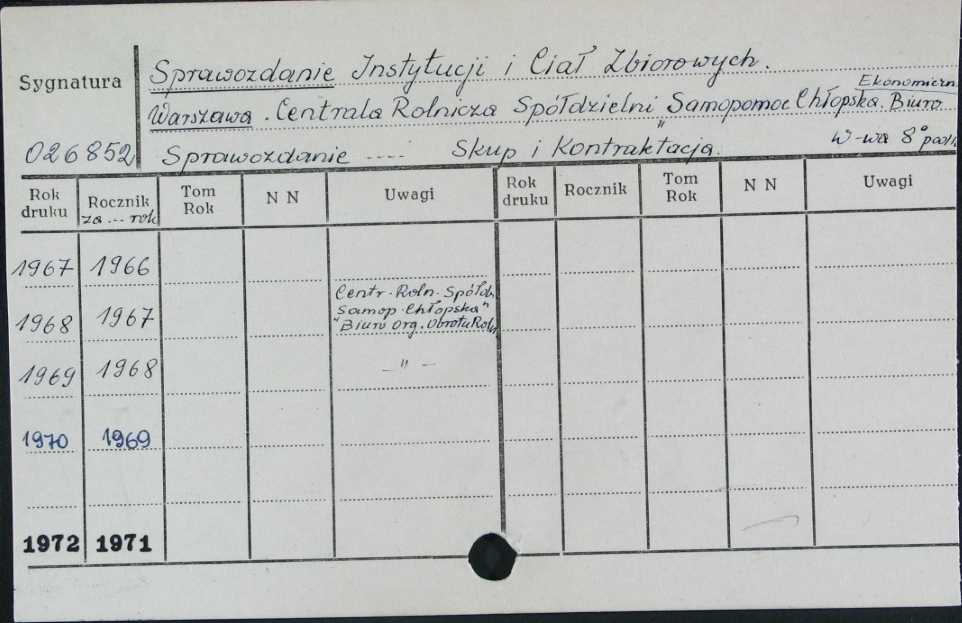 Sygnatura
Sprawozdanie Instytucji i Ciał Zbiorowych.
Ekonomiczn.
Warszawa. Centrala Rolnicza Spółdzielni "Samopomoc Chłopska. Biuro
026852 Sprawozdanie .... Skup i Kontraktacja. W-wa 8°
Rok druku Rocznik za ... rok Tom Rok N N Uwagi Rok druku Rocznik Tom Rok N N Uwagi
1967 1966
Centr. Roln. Spółdz.
Samop. Chłopska"
1968 1967 "Biuro Org. Obrotu Roln
1969 1968 — " —
1970 1969
1972 1971